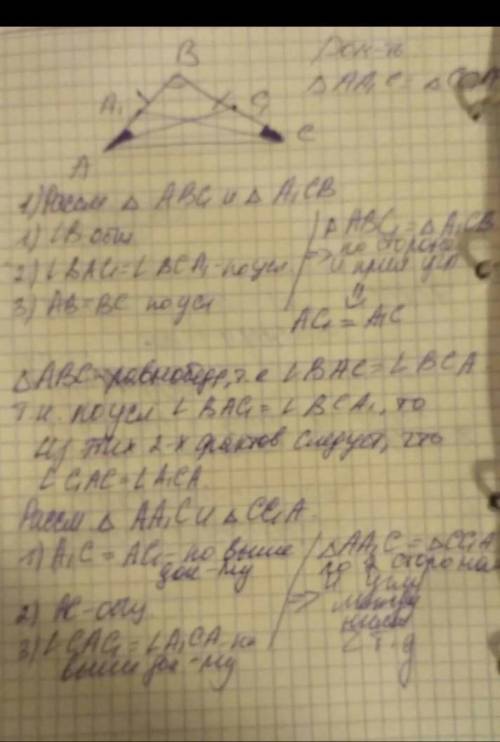 B
Док-ть
△AA₁C = △CC₁A
A₁
C₁
A
C
1) Рассм △ ABC₁ и △ A₁CB
1) ∠B общ
2) ∠BAC₁ = ∠BCA₁ - по усл
3) AB = BC по усл
⇒ △ABC₁ = △A₁CB
по стороне
и прил угл
⇓
AC₁ = A₁C
△ABC - равнобедр, т.е ∠BAC = ∠BCA
Т.к. по усл ∠BAC₁ = ∠BCA₁, то
из тих 2-х фактов следует, что
∠C₁AC = ∠A₁CA
Рассм △ AA₁C и △CC₁A
1) A₁C = AC₁ - по выше
док-му
2) AC - общ
3) ∠CAC₁ = ∠A₁CA - по
выше док-му
⇒ △AA₁C = △CC₁A
по 2 сторона
и углу
между
ними
Ч.т.д